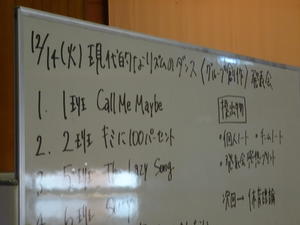 12/14(火) 現代的なリズムのダンス (グループ創作) 発表会
1. 1班 Call Me Maybe
2. 2班 キミに100パーセント
3. 5班 The Lazy Song
4. 6班
提出物
・個人ノート ・チームノート
・発表会感想プリント
次回→ 体育理論